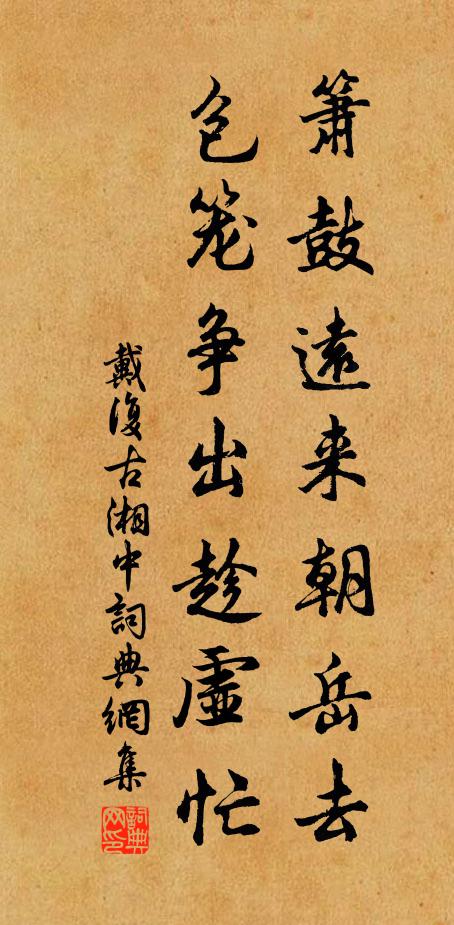 簫鼓遠来朝岳去
包笼争出趁虛忙
戴復古湘中詞典網集
詞典网印